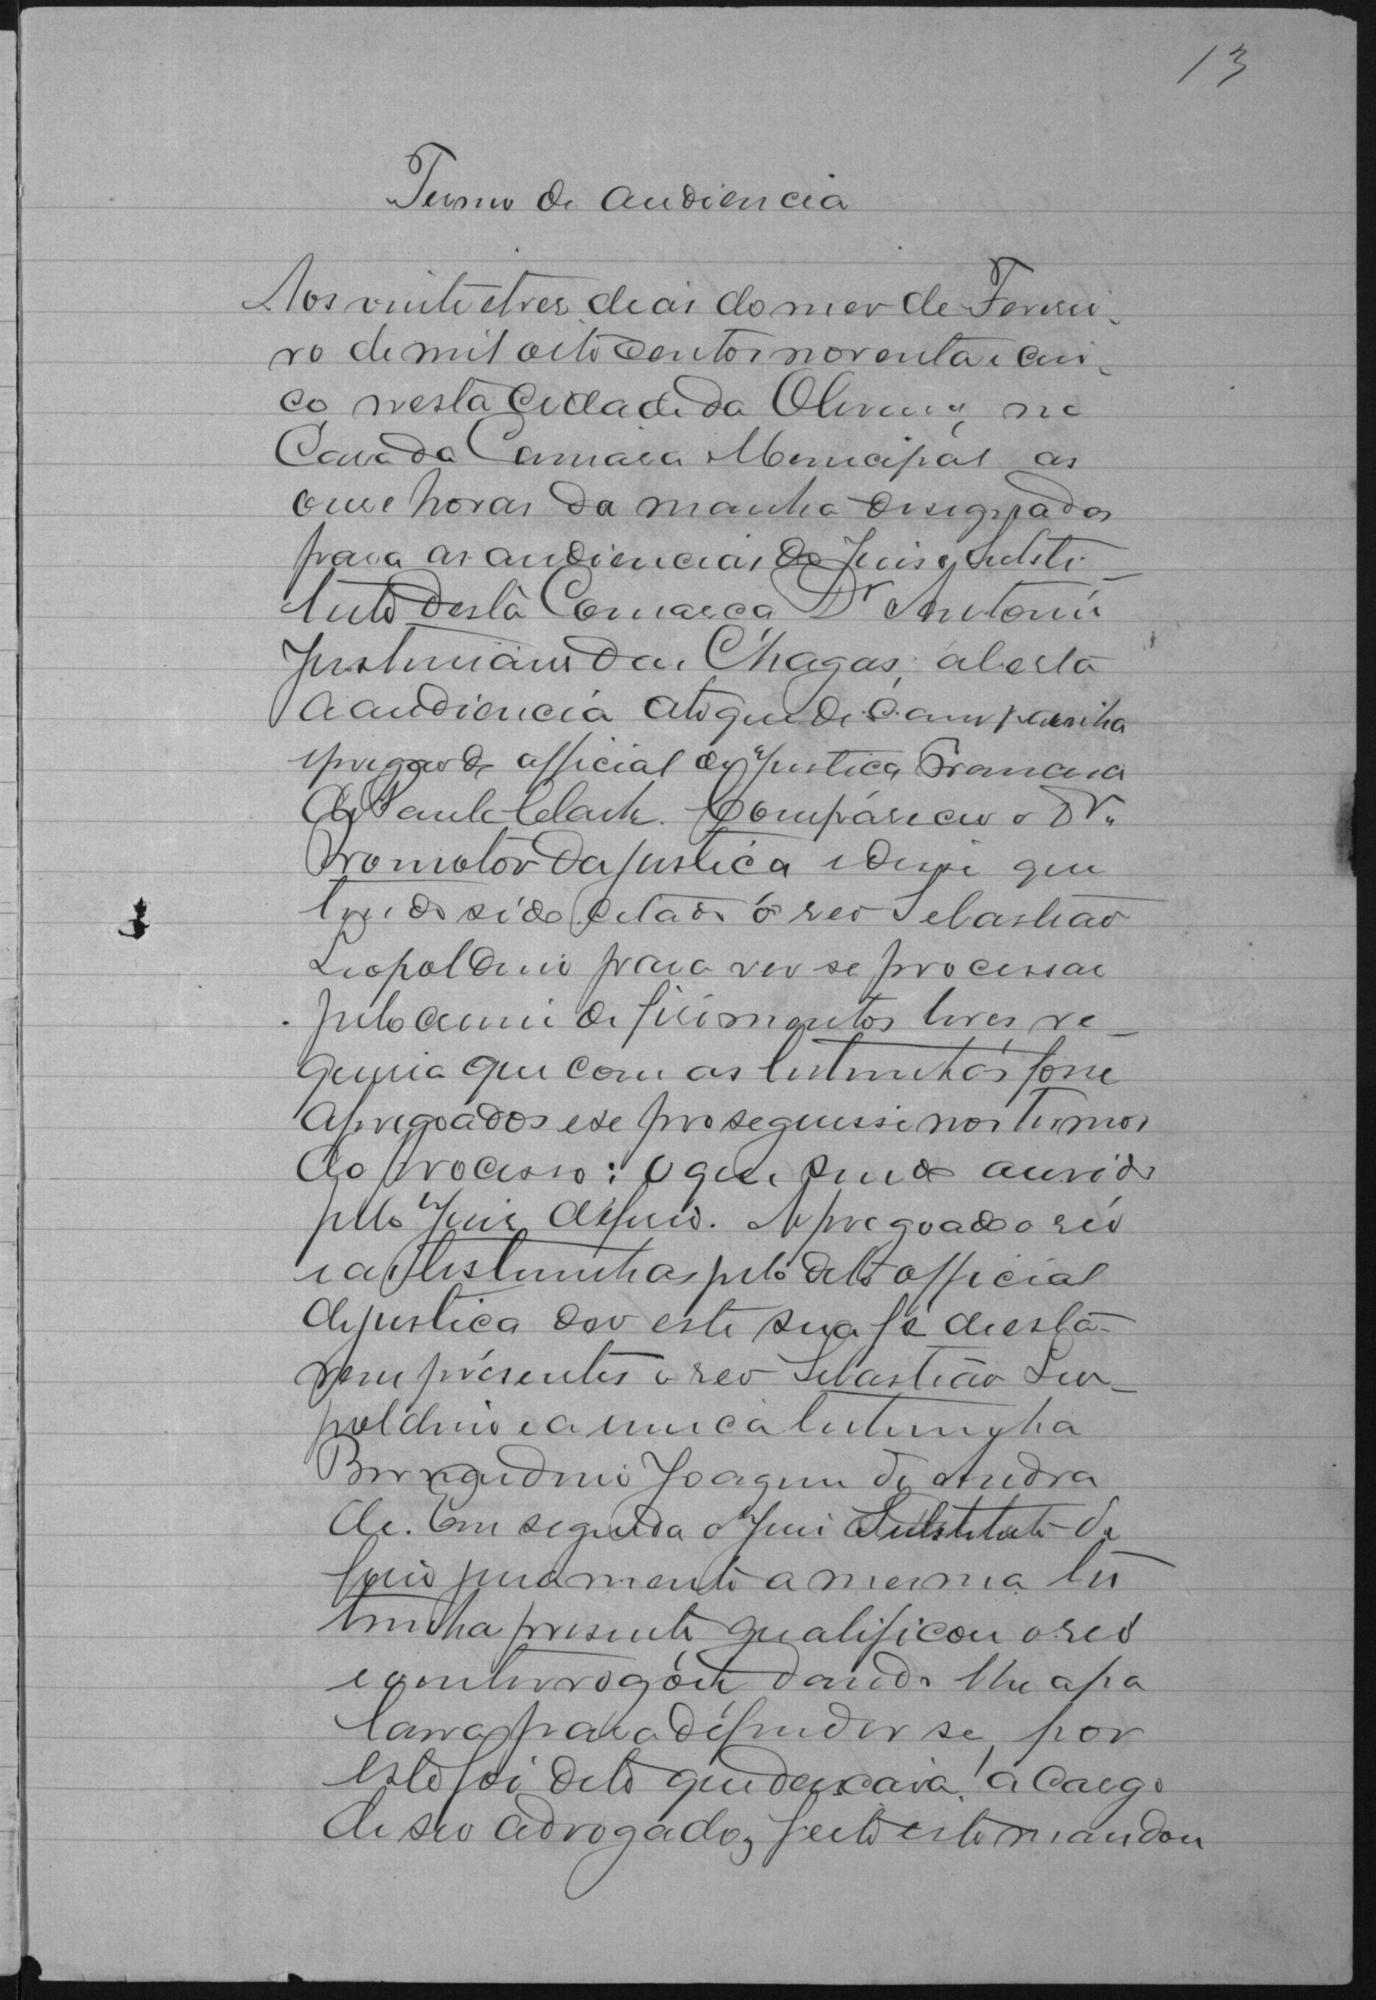 13
Termo de audiencia
Aos vinte e tres dias do mez de Feverei-
ro de mil oito centos noventa e cin-
co nesta Cidade da Oliveira, na
Casa da Camara Municipal as
onze horas da manha designadas
para as audiencias do Juis Substi-
tuto desta Comarca Dr Antonio
Justiniano das Chagas, aberta
a audiencia a toque de campainha
e pregão do official de justica Francisco
de Paula. Compareceo o Dr.
Promotor da justica e disse que
tendo sido citado o reo Sebastião
Leopoldino para ver se processar
pelo crime de ferimentos leves re-
queria que com as testimunhas fosse
apregoados e se proseguisse nos termos
do processo: o que sendo ouvido
pelo Juis deferio. Apregoado o reo
e as testimunhas pelo dito official
de justica deo este sua fé de esta-
rem presentes o reo Sebastião Leo-
poldino e a unica testimunha
Joaquim de Andra
de. Em seguida o Juis Substituto de
ferio juramento a mesma tes
timunha presente qualificou o reo
e o interrogou dando lhe a pa
lavra para defender se, por
este foi dito que deixava a cargo
de seo advogado, feito isto mandou